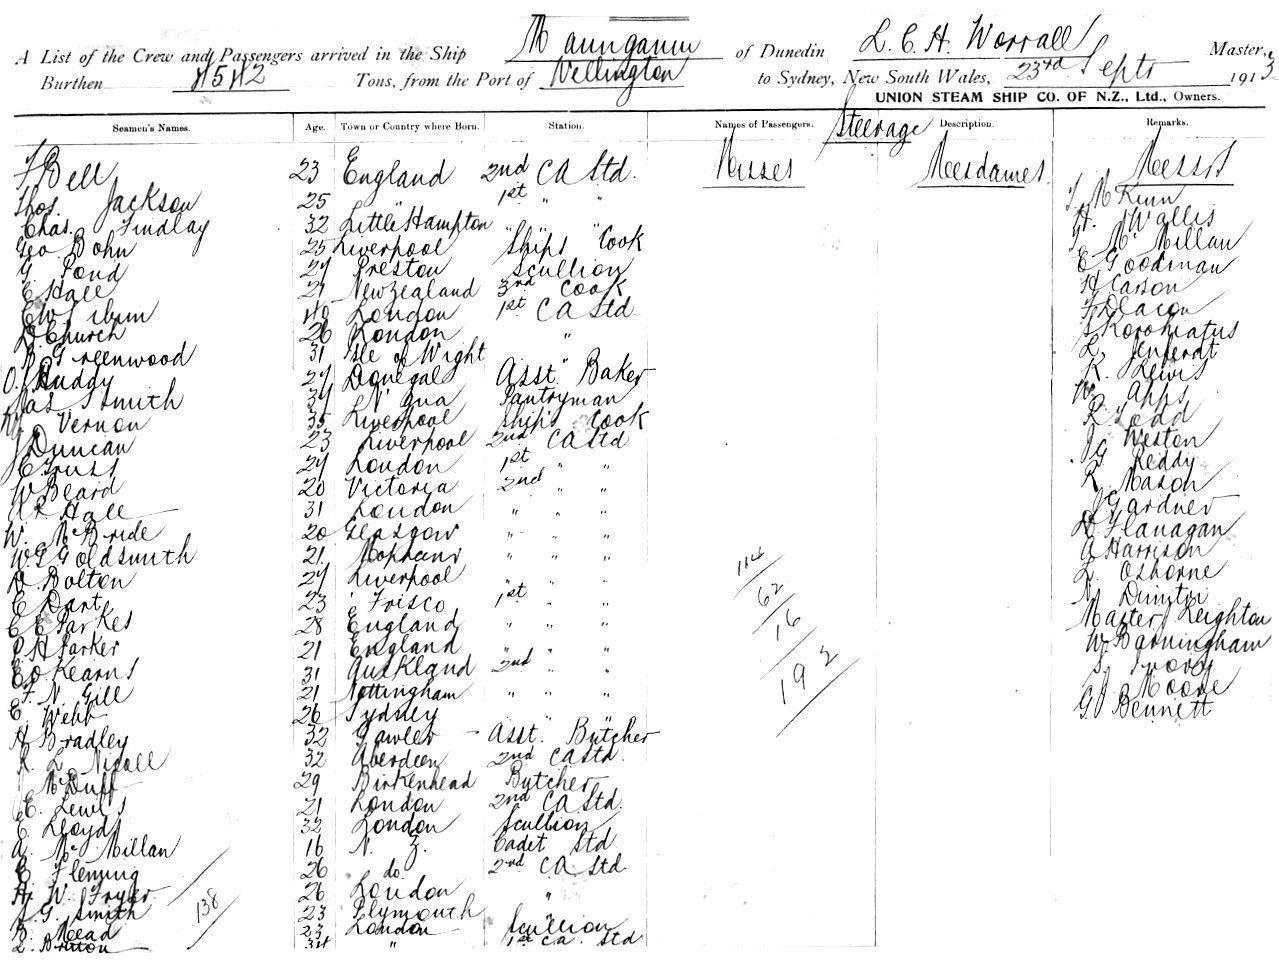 A List of the Crew and Passengers arrived in the Ship Maunganui of Dunedin L. C. H. Worrall Master,
Burthen 4542 Tons, from the Port of Wellington to Sydney, New South Wales, 23rd Septr 1913
UNION STEAM SHIP CO. OF N.Z., Ltd., Owners.
Seamen's Names. Age. Town or Country where Born. Station. Names of Passengers. Steerage Description. Remarks.
Misses Mesdames Messrs
F Bell 23 England 2nd CA Std.
Thos. Jackson 25 " 1st " "
Chas. Findlay 32 Little Hampton " " "
Geo Bohn 25 Liverpool Ships Cook
G Pond 27 Preston Scullion
E Hall 21 New Zealand 3rd Cook
E W 40 London 1st CA Std
D Church 26 London "
Greenwood 31 Isle of Wight "
O. Buddy 27 Donegal Asst. Baker
Jas Smith 34 Pantryman
Vernon 35 Liverpool Ship's Cook
J Duncan 23 Liverpool 2nd CA Std
E Truss 27 London 1st " "
W Beard 20 Victoria 2nd " "
Hall 31 London " " "
W. McBride 20 Glasgow " " "
W G Goldsmith 21 " " "
D. Bolton 27 Liverpool " " "
E Dart 23 Frisco 1st " "
E E Parkes 28 England " " "
P H Parker 21 England " " "
E O Kearns 31 Auckland 2nd " "
F. N. Gill 21 Nottingham " " "
E Webb 26 Sydney " "
H Bradley 32 Gawler Asst. Butcher
R. L. Nisall 32 Aberdeen 2nd CA Std.
McDuff 29 Birkenhead Butcher
E. Lewis 21 London 2nd CA Std.
E. Lloyd 32 London Scullion
A. McMillan 16 N. Z. Cadet Std
E Fleming 26 do. 2nd CA Std
H. W. Fryer 26 London "
S G. Smith 23 Plymouth "
B. Mead 23 London Scullion
L. Britton 34 " 1st CA. Std
138
114
62
16
192
T McKinn
H. Wallis
McMillan
E Goodman
H Carson
F Deacon
L.
R. Lewis
W Apps
R Todd
J Weston
G Reddy
R. Mason
J Gardner
D Flanagan
A Harrison
L. Osborne
N.
Master Leighton
W Barningham
S. Ivory
J Moore
G. Bennett